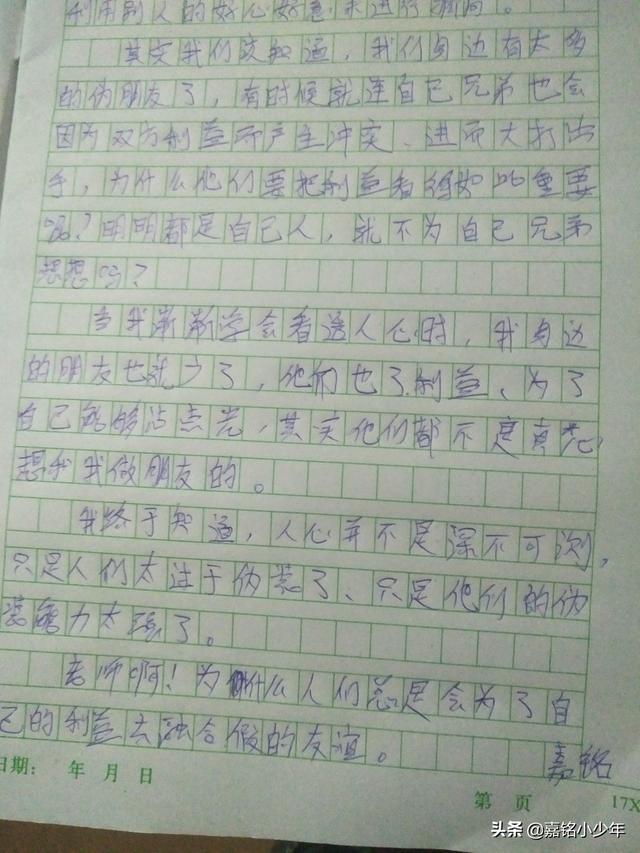 利用别人的好心好意来进行
其实我们该知道，我们身边有太多
的伪朋友了，有时候就连自己兄弟也会
因为双方利益而产生冲突、进而大打出
手，为什么他们要把利益看得如此重要
呢？明明都是自己人，就不为自己兄弟
想想吗？
当我渐渐学会看透人心时，我身边
的朋友也就少了，他们也了利益、为了
自己能够沾点光，其实他们都不是真心
想和我做朋友的。
我终于知道，人心并不是深不可测，
只是人们太过于伪装了、只是他们的伪
装能力太强了。
老师啊！为什么人们总是会为了自
己的利益去融合假的友谊。
嘉铭
日期： 年 月 日
第 页
17X
头条 @嘉铭小少年